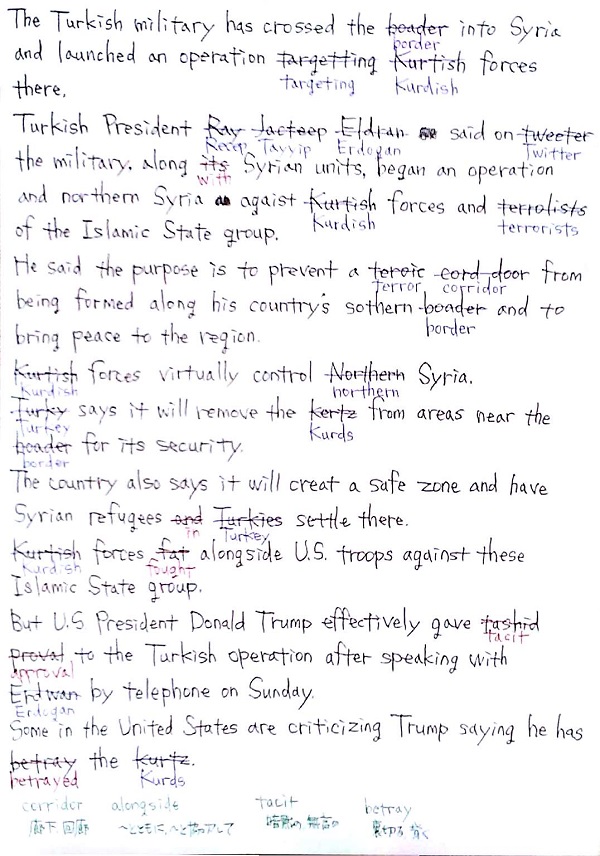 The Turkish military has crossed the boader into Syria
border
and launched an operation targetting Kurtish forces
targeting Kurdish
there.
Turkish President Ray Jacteep Eldran said on tweeter
Recep Tayyip Erdogan Twitter
the military, along its Syrian units, began an operation
with
and northern Syria agaist Kurtish forces and terrolists
Kurdish terrorists
of the Islamic State group.
He said the purpose is to prevent a teroic cord door from
terror corridor
being formed along his country's sothern boader and to
border
bring peace to the region.
Kurtish forces virtually control Northern Syria.
Kurdish northern
Turky says it will remove the kertz from areas near the
Turkey Kurds
boader for its security.
border
The country also says it will creat a safe zone and have
Syrian refugees and Turkies settle there.
in Turkey
Kurtish forces fat alongside U.S. troops against these
Kurdish fought
Islamic State group.
But U.S President Donald Trump effectively gave tashid
tacit
proval to the Turkish operation after speaking with
approval
Erdwan by telephone on Sunday.
Erdogan
Some in the United States are criticizing Trump saying he has
betray the kurtz.
betrayed Kurds
corridor alongside tacit betray
廊下、回廊 〜とともに、〜と協力して 暗黙の、無言の 裏切る、背く